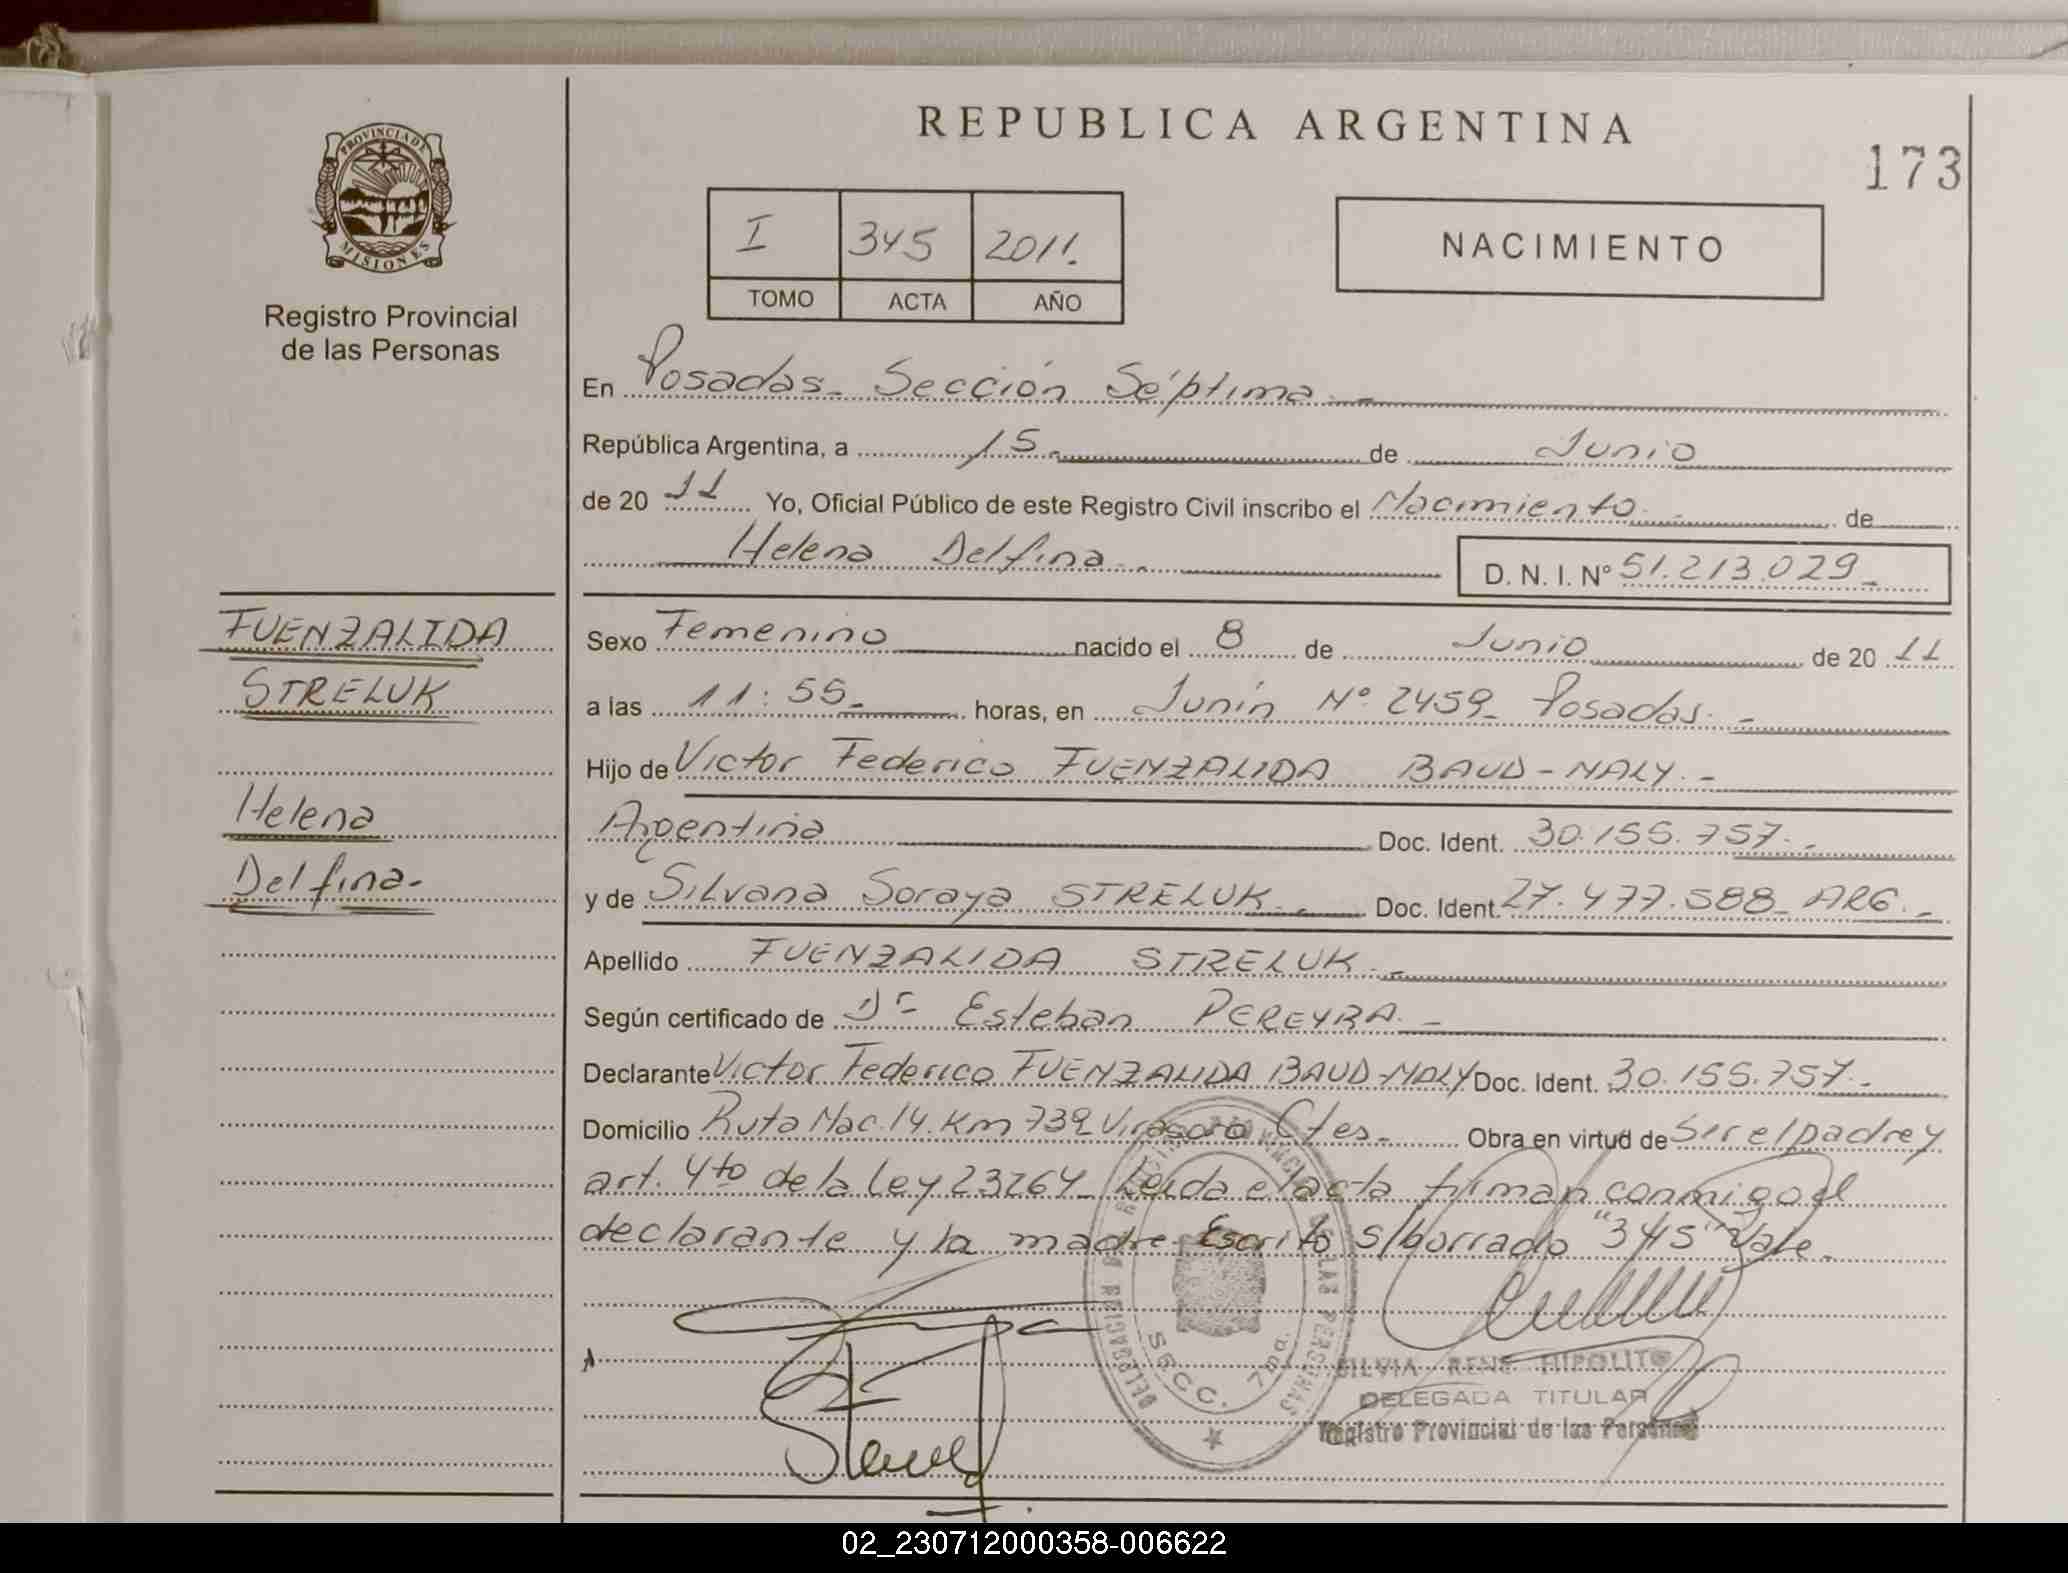 PROVINCIA DE
MISIONES
Registro Provincial
de las Personas
FUENZALIDA
STRELUK
Helena
Delfina.
REPUBLICA ARGENTINA
173
I 345 2011.
TOMO ACTA AÑO
NACIMIENTO
En Posadas - Sección Séptima. -
República Argentina, a 15. de Junio
de 20 11 Yo, Oficial Público de este Registro Civil inscribo el Nacimiento. de
Helena Delfina. D. N. I. Nº 51.213.029_
Sexo Femenino nacido el 8 de Junio de 20 11
a las 11:55_ horas, en Junín Nº 2459_ Posadas. -
Hijo de Victor Federico FUENZALIDA BAUD-NALY. -
Argentina Doc. Ident. 30.155.757. -
y de Silvana Soraya STRELUK. - Doc. Ident. 27.477.588_ ARG. -
Apellido FUENZALIDA STRELUK. -
Según certificado de Dr Esteban PEREYRA. -
Declarante Victor Federico FUENZALIDA BAUD-NALY Doc. Ident. 30.155.757. -
Domicilio Ruta Nac. 14. Km 739 Virasoro Ctes_ Obra en virtud de Ser el padre y
art. 4to de la ley 23264_ Leída el acta firman conmigo el
declarante y la madre Escrito s/borrado "345" Vale_
SECC. 7ma.
SILVIA RENE HIPOLITO
DELEGADA TITULAR
Registro Provincial de las Personas
02_230712000358-006622